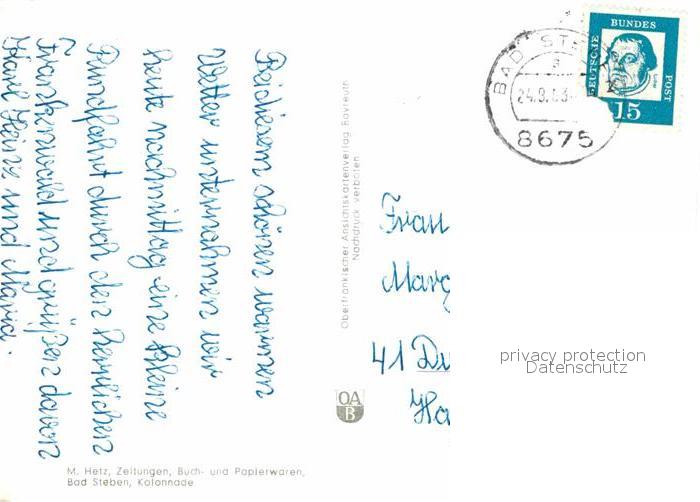 Bei diesem schönen warmen
Wetter unternahmen wir
heute nachmittag eine kleine
Rundfahrt durch den herrlichen
Frankenwald und grüßen davon
Karl Heinz und Maria.
Oberfränkischer Ansichtskartenverlag Bayreuth
Nachdruck verboten
BAD STE
a
24.9.63
8675
DEUTSCHE
BUNDES
POST
15
Frau
Marg
41 Du
Ha
privacy protection
Datenschutz
OA
B
M. Hetz, Zeitungen, Buch- und Papierwaren,
Bad Steben, Kolonnade